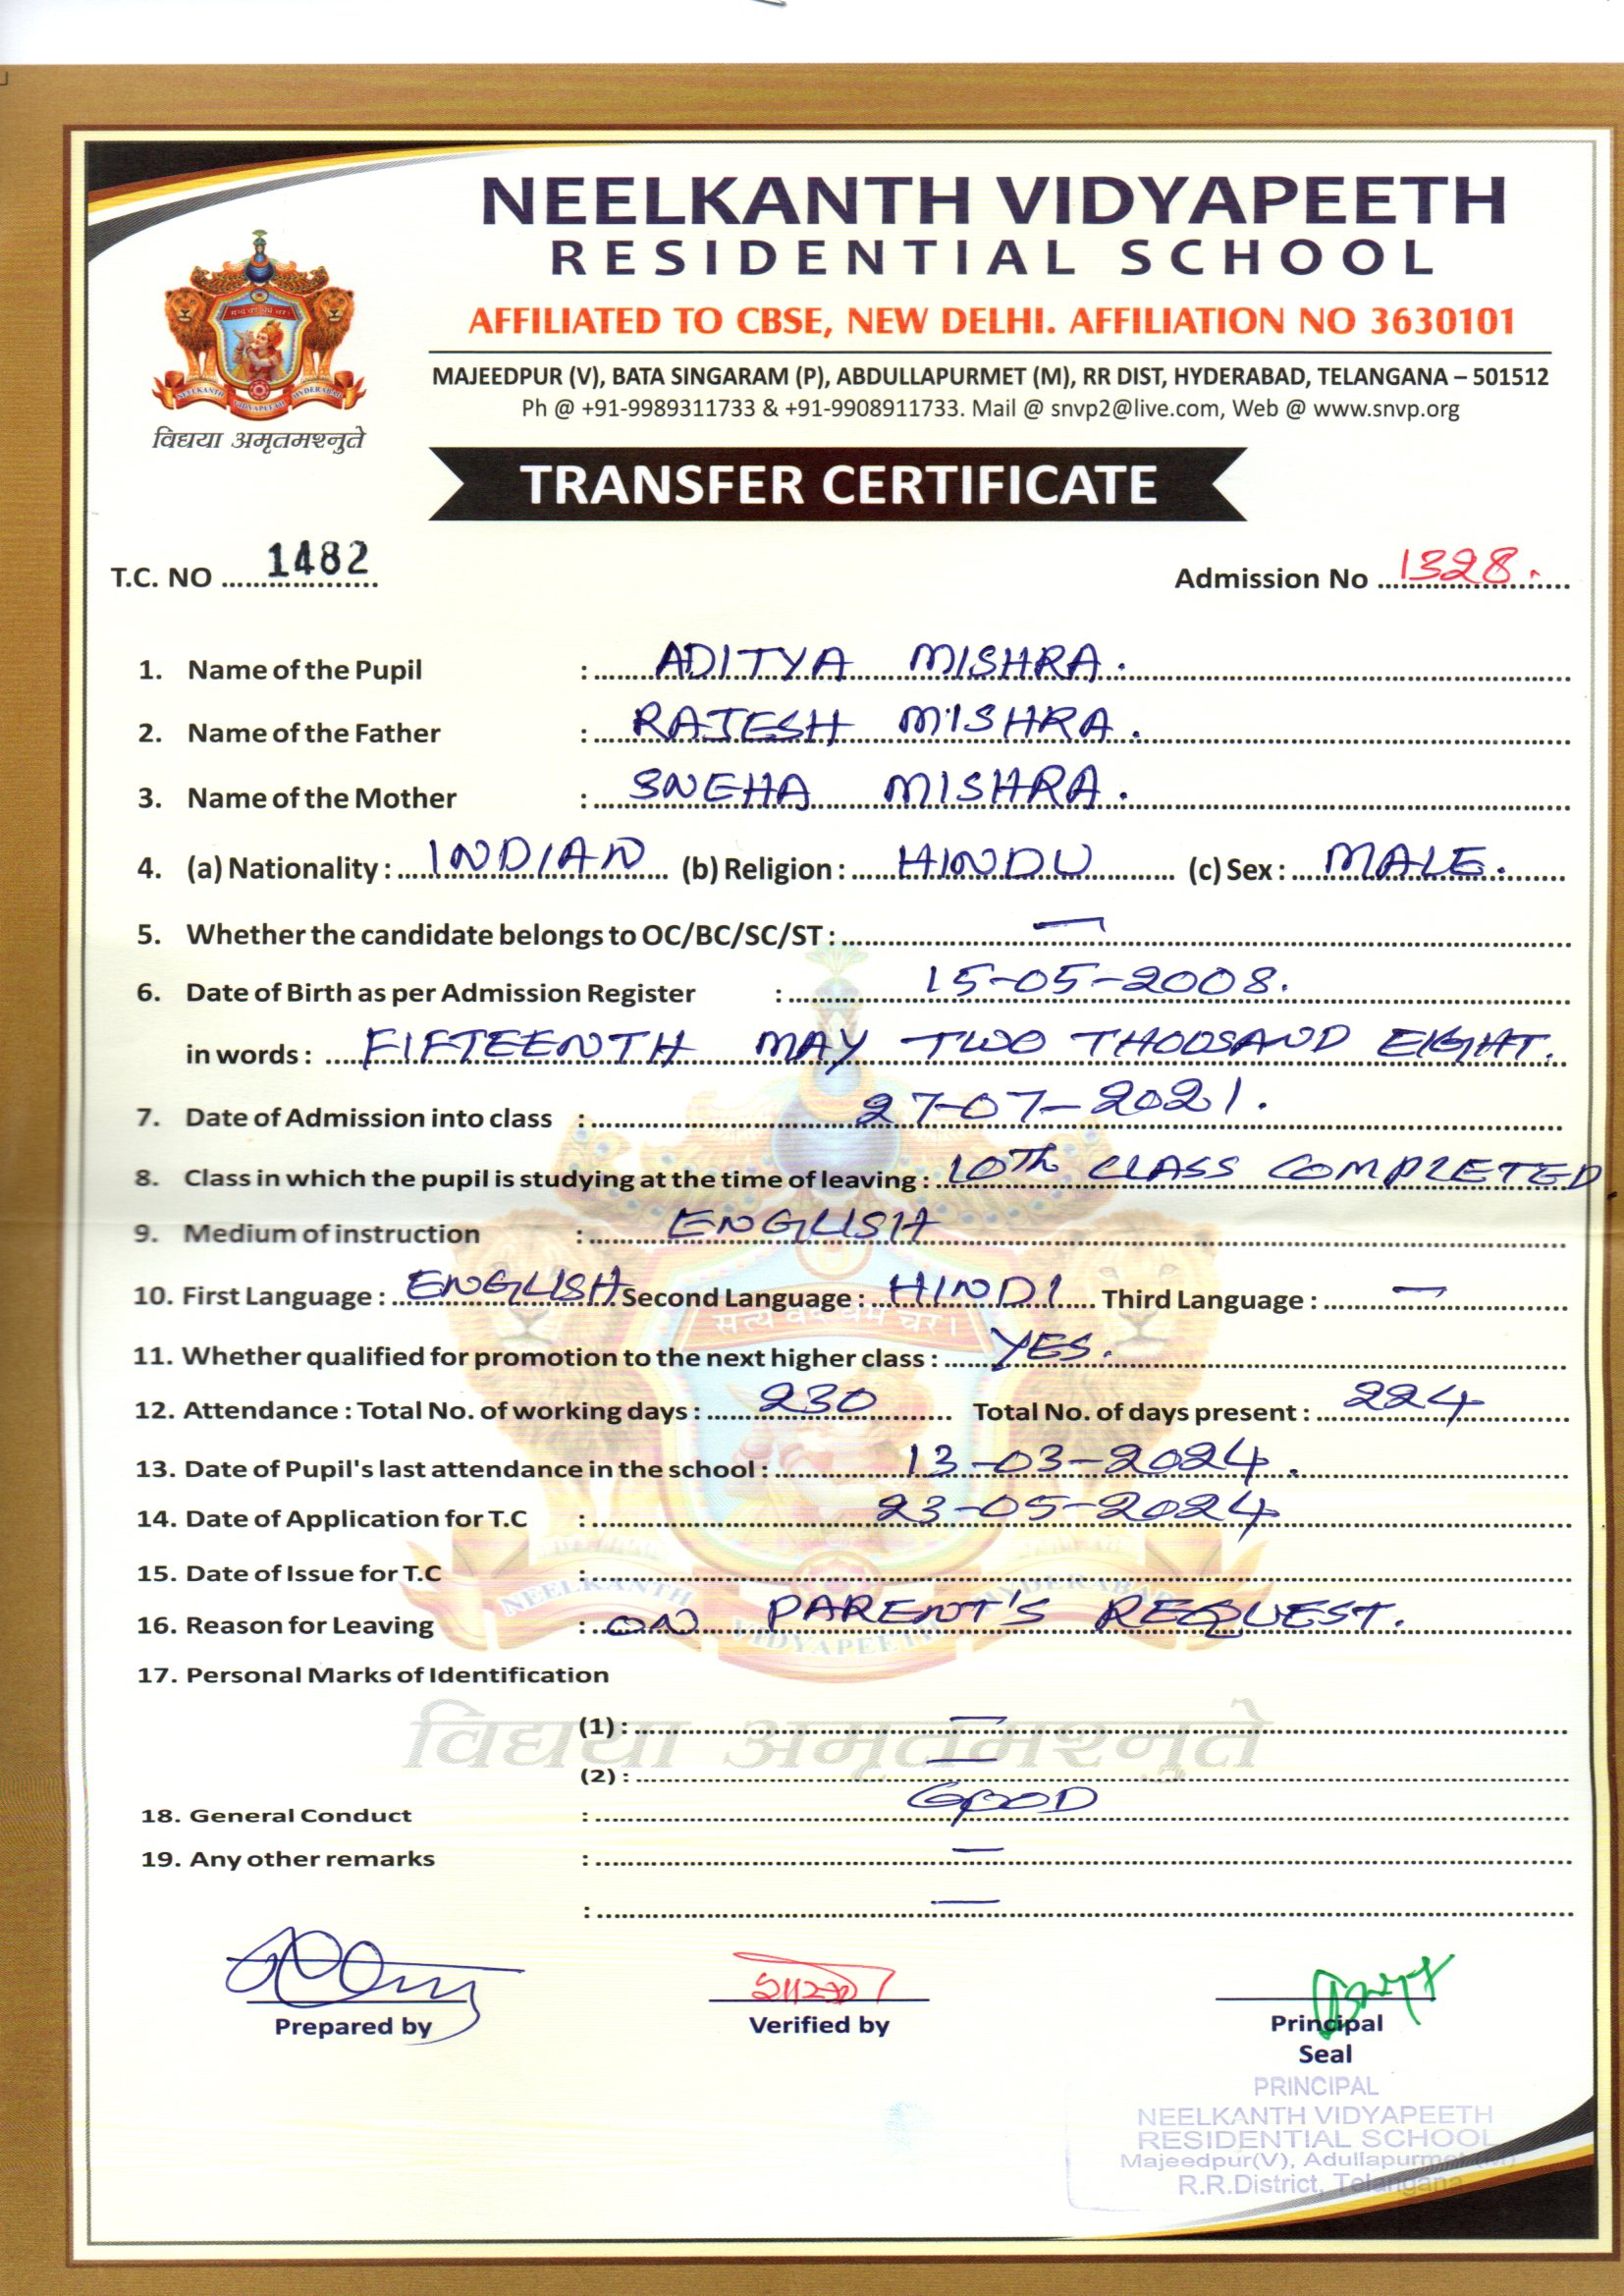 NEELKANTH VIDYAPEETH
RESIDENTIAL SCHOOL
AFFILIATED TO CBSE, NEW DELHI. AFFILIATION NO 3630101
MAJEEDPUR (V), BATA SINGARAM (P), ABDULLAPURMET (M), RR DIST, HYDERABAD, TELANGANA – 501512
Ph @ +91-9989311733 & +91-9908911733. Mail @ snvp2@live.com, Web @ www.snvp.org
NEELKANTH VIDYAPEETH HYDERABAD
विद्यया अमृतमश्नुते
TRANSFER CERTIFICATE
T.C. NO 1482 Admission No 1328.
1. Name of the Pupil : ADITYA MISHRA.
2. Name of the Father : RAJESH MISHRA.
3. Name of the Mother : SNEHA MISHRA.
4. (a) Nationality : INDIAN (b) Religion : HINDU (c) Sex : MALE.
5. Whether the candidate belongs to OC/BC/SC/ST : —
6. Date of Birth as per Admission Register : 15-05-2008.
in words : FIFTEENTH MAY TWO THOUSAND EIGHT.
7. Date of Admission into class : 27-07-2021.
8. Class in which the pupil is studying at the time of leaving : 10th CLASS COMPLETED.
9. Medium of instruction : ENGLISH
10. First Language : ENGLISH Second Language : HINDI Third Language : —
सत्यं वद धर्मं चर।
11. Whether qualified for promotion to the next higher class : YES.
12. Attendance : Total No. of working days : 230 Total No. of days present : 224
13. Date of Pupil's last attendance in the school : 13-03-2024.
14. Date of Application for T.C : 23-05-2024
15. Date of Issue for T.C :
NEELKANTH VIDYAPEETH HYDERABAD
16. Reason for Leaving : ON PARENT'S REQUEST.
17. Personal Marks of Identification
(1) : —
विद्यया अमृतमश्नुते
(2) : —
18. General Conduct : GOOD
19. Any other remarks : —
: —
Prepared by Verified by Principal
Seal
PRINCIPAL
NEELKANTH VIDYAPEETH
RESIDENTIAL SCHOOL
Majeedpur(V), Adullapurmet (M)
R.R.District, Telangana